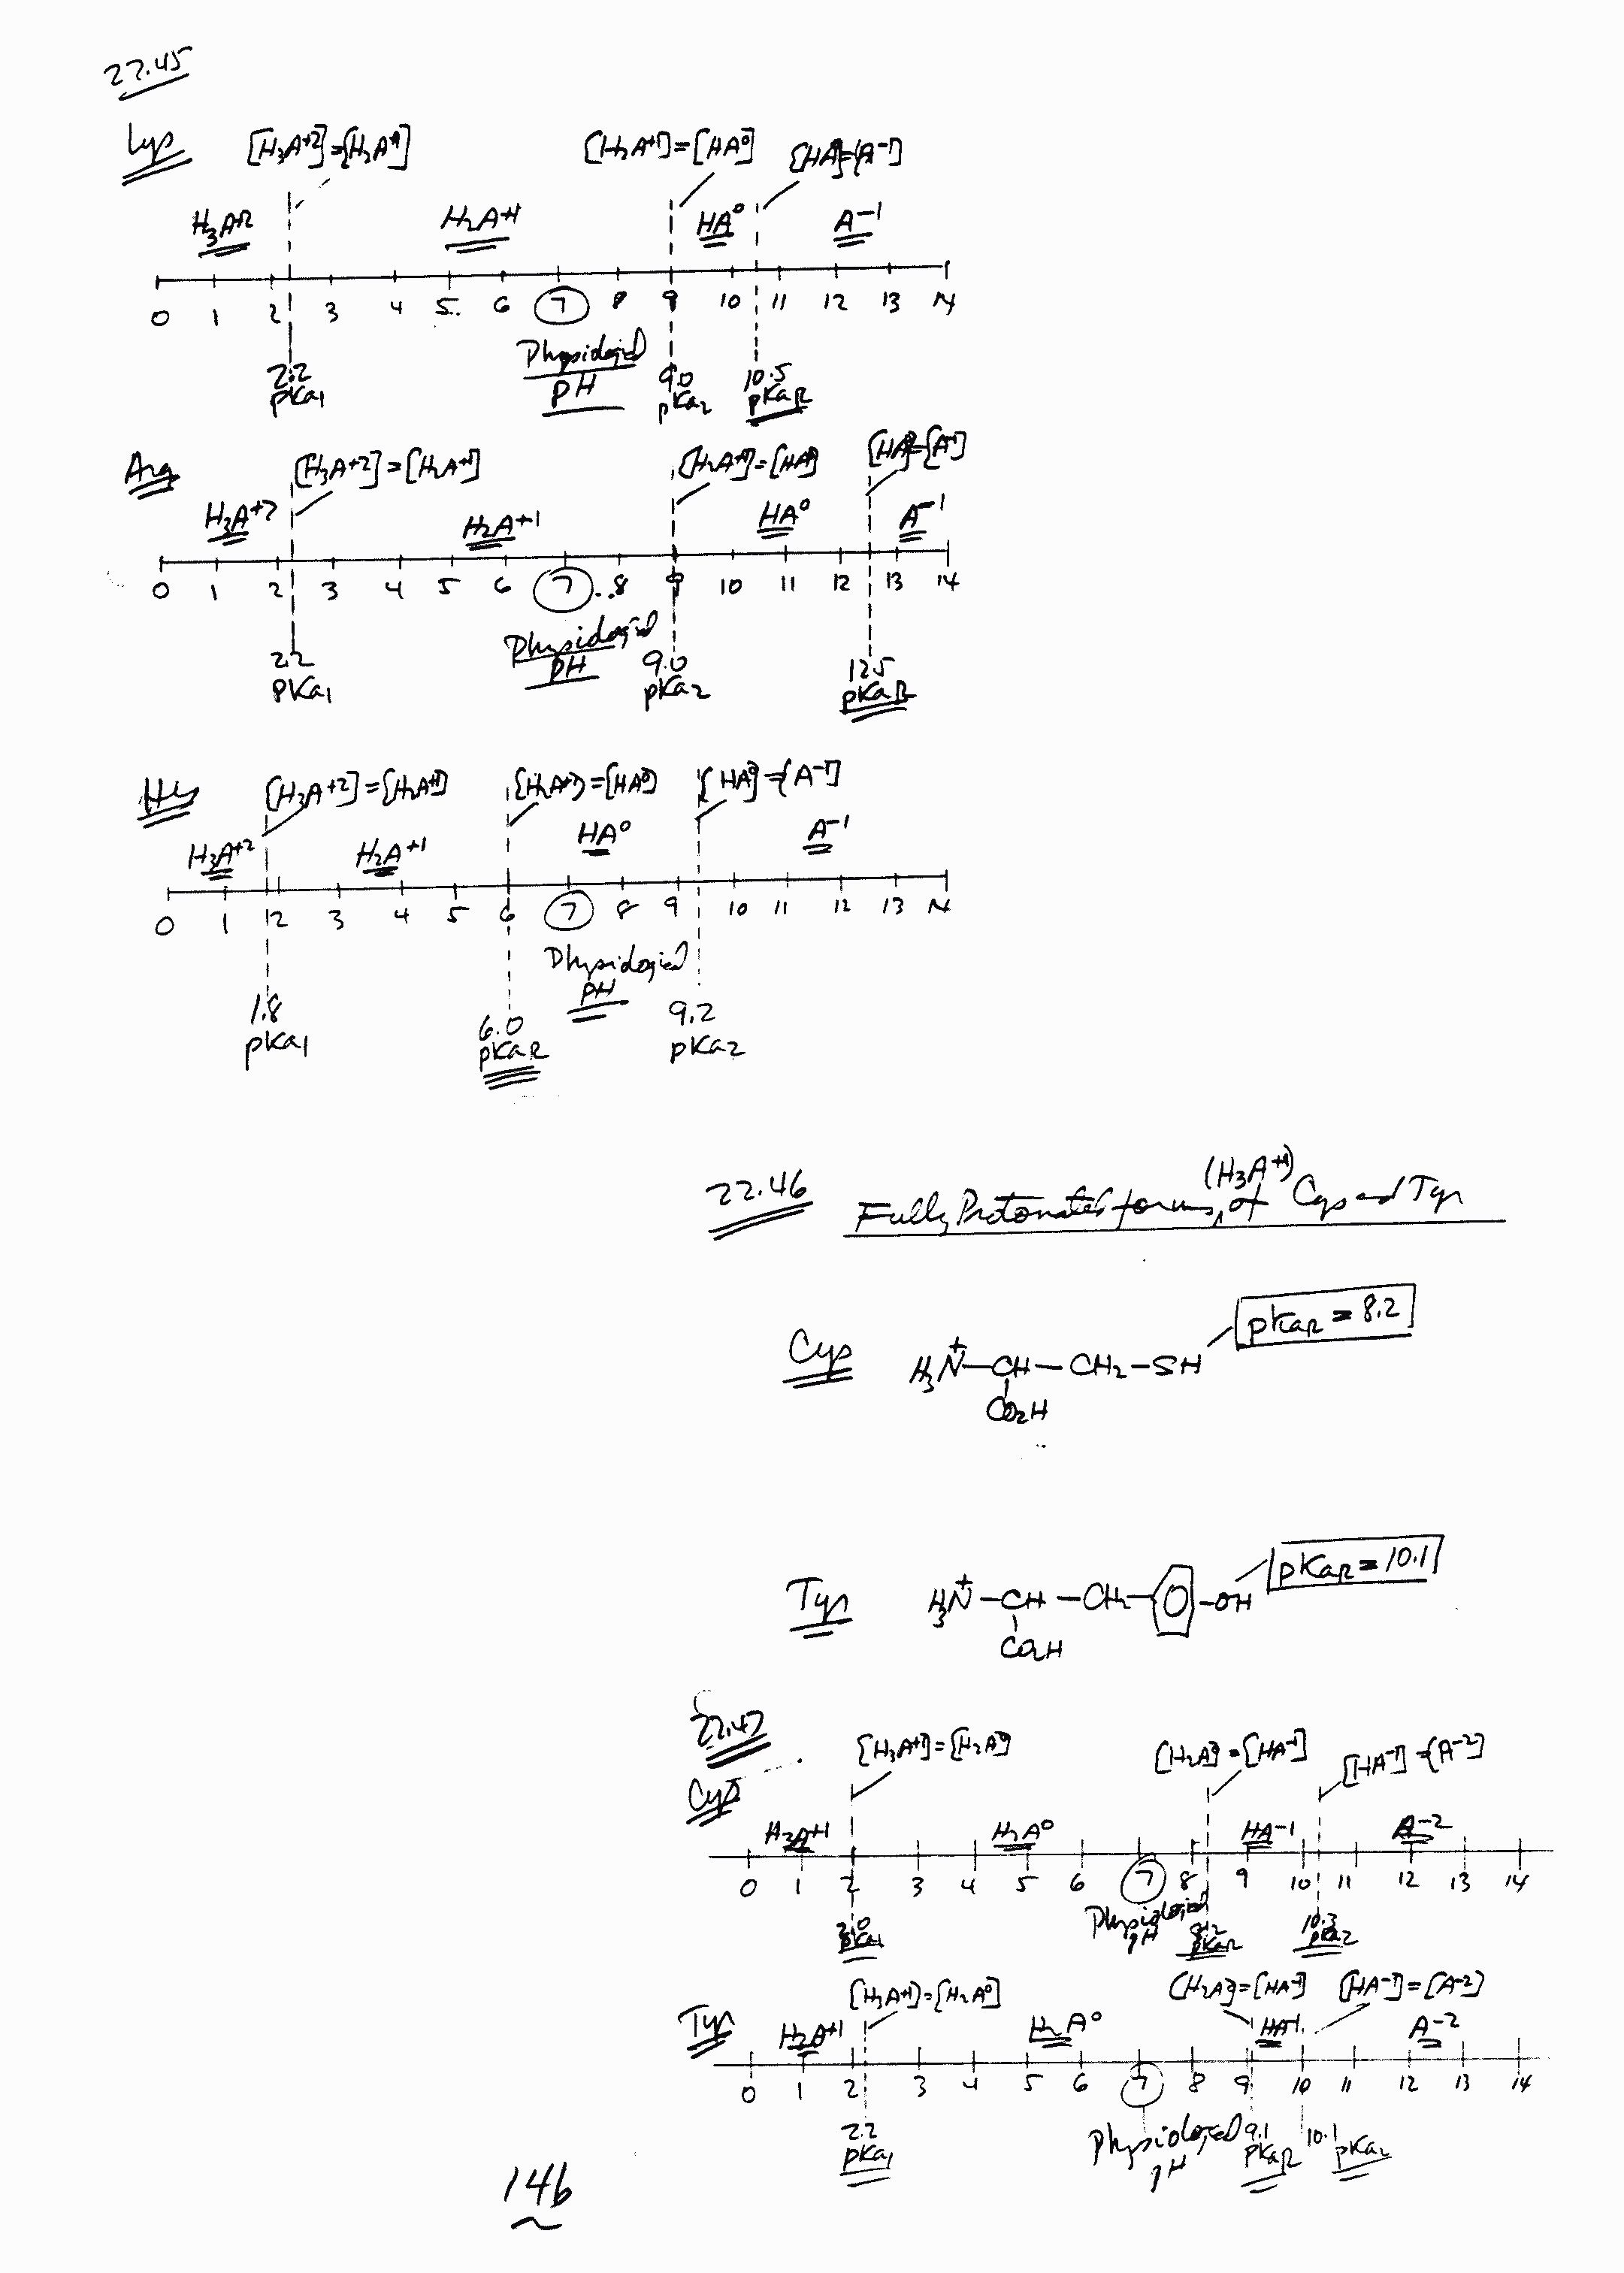 22.45
Lys
[H3A+2]=[H2A+1] [H2A+1]=[HA0] [HA0]=[A-1]
H3A+2 H2A+1 HA0 A-1
0 1 2 3 4 5 6 7 8 9 10 11 12 13 14
Physiological pH
2.2 pKa1 9.0 pKa2 10.5 pKaR
Arg
[H3A+2]=[H2A+1] [H2A+1]=[HA0] [HA0]=[A-1]
H3A+2 H2A+1 HA0 A-1
0 1 2 3 4 5 6 7 8 9 10 11 12 13 14
Physiological pH
2.2 pKa1 9.0 pKa2 12.5 pKaR
His
[H3A+2]=[H2A+1] [H2A+1]=[HA0] [HA0]=[A-1]
H3A+2 H2A+1 HA0 A-1
0 1 2 3 4 5 6 7 8 9 10 11 12 13 14
Physiological pH
1.8 pKa1 6.0 pKaR 9.2 pKa2
22.46
Fully Protonated forms (H3A+1) of Cys and Tyr
Cys H3N+—CH—CH2—SH pKaR = 8.2
CO2H
Tyr H3N+—CH—CH2— —OH pKaR = 10.1
CO2H
22.47
Cys
[H3A+1]=[H2A0] [H2A0]=[HA-1] [HA-1]=[A-2]
H3A+1 H2A0 HA-1 A-2
0 1 2 3 4 5 6 7 8 9 10 11 12 13 14
Physiological pH
2.0 pKa1 8.2 pKaR 10.3 pKa2
Tyr
[H3A+1]=[H2A0] [H2A0]=[HA-1] [HA-1]=[A-2]
H3A+1 H2A0 HA-1 A-2
0 1 2 3 4 5 6 7 8 9 10 11 12 13 14
Physiological pH
2.2 pKa1 9.1 pKaR 10.1 pKa2
146